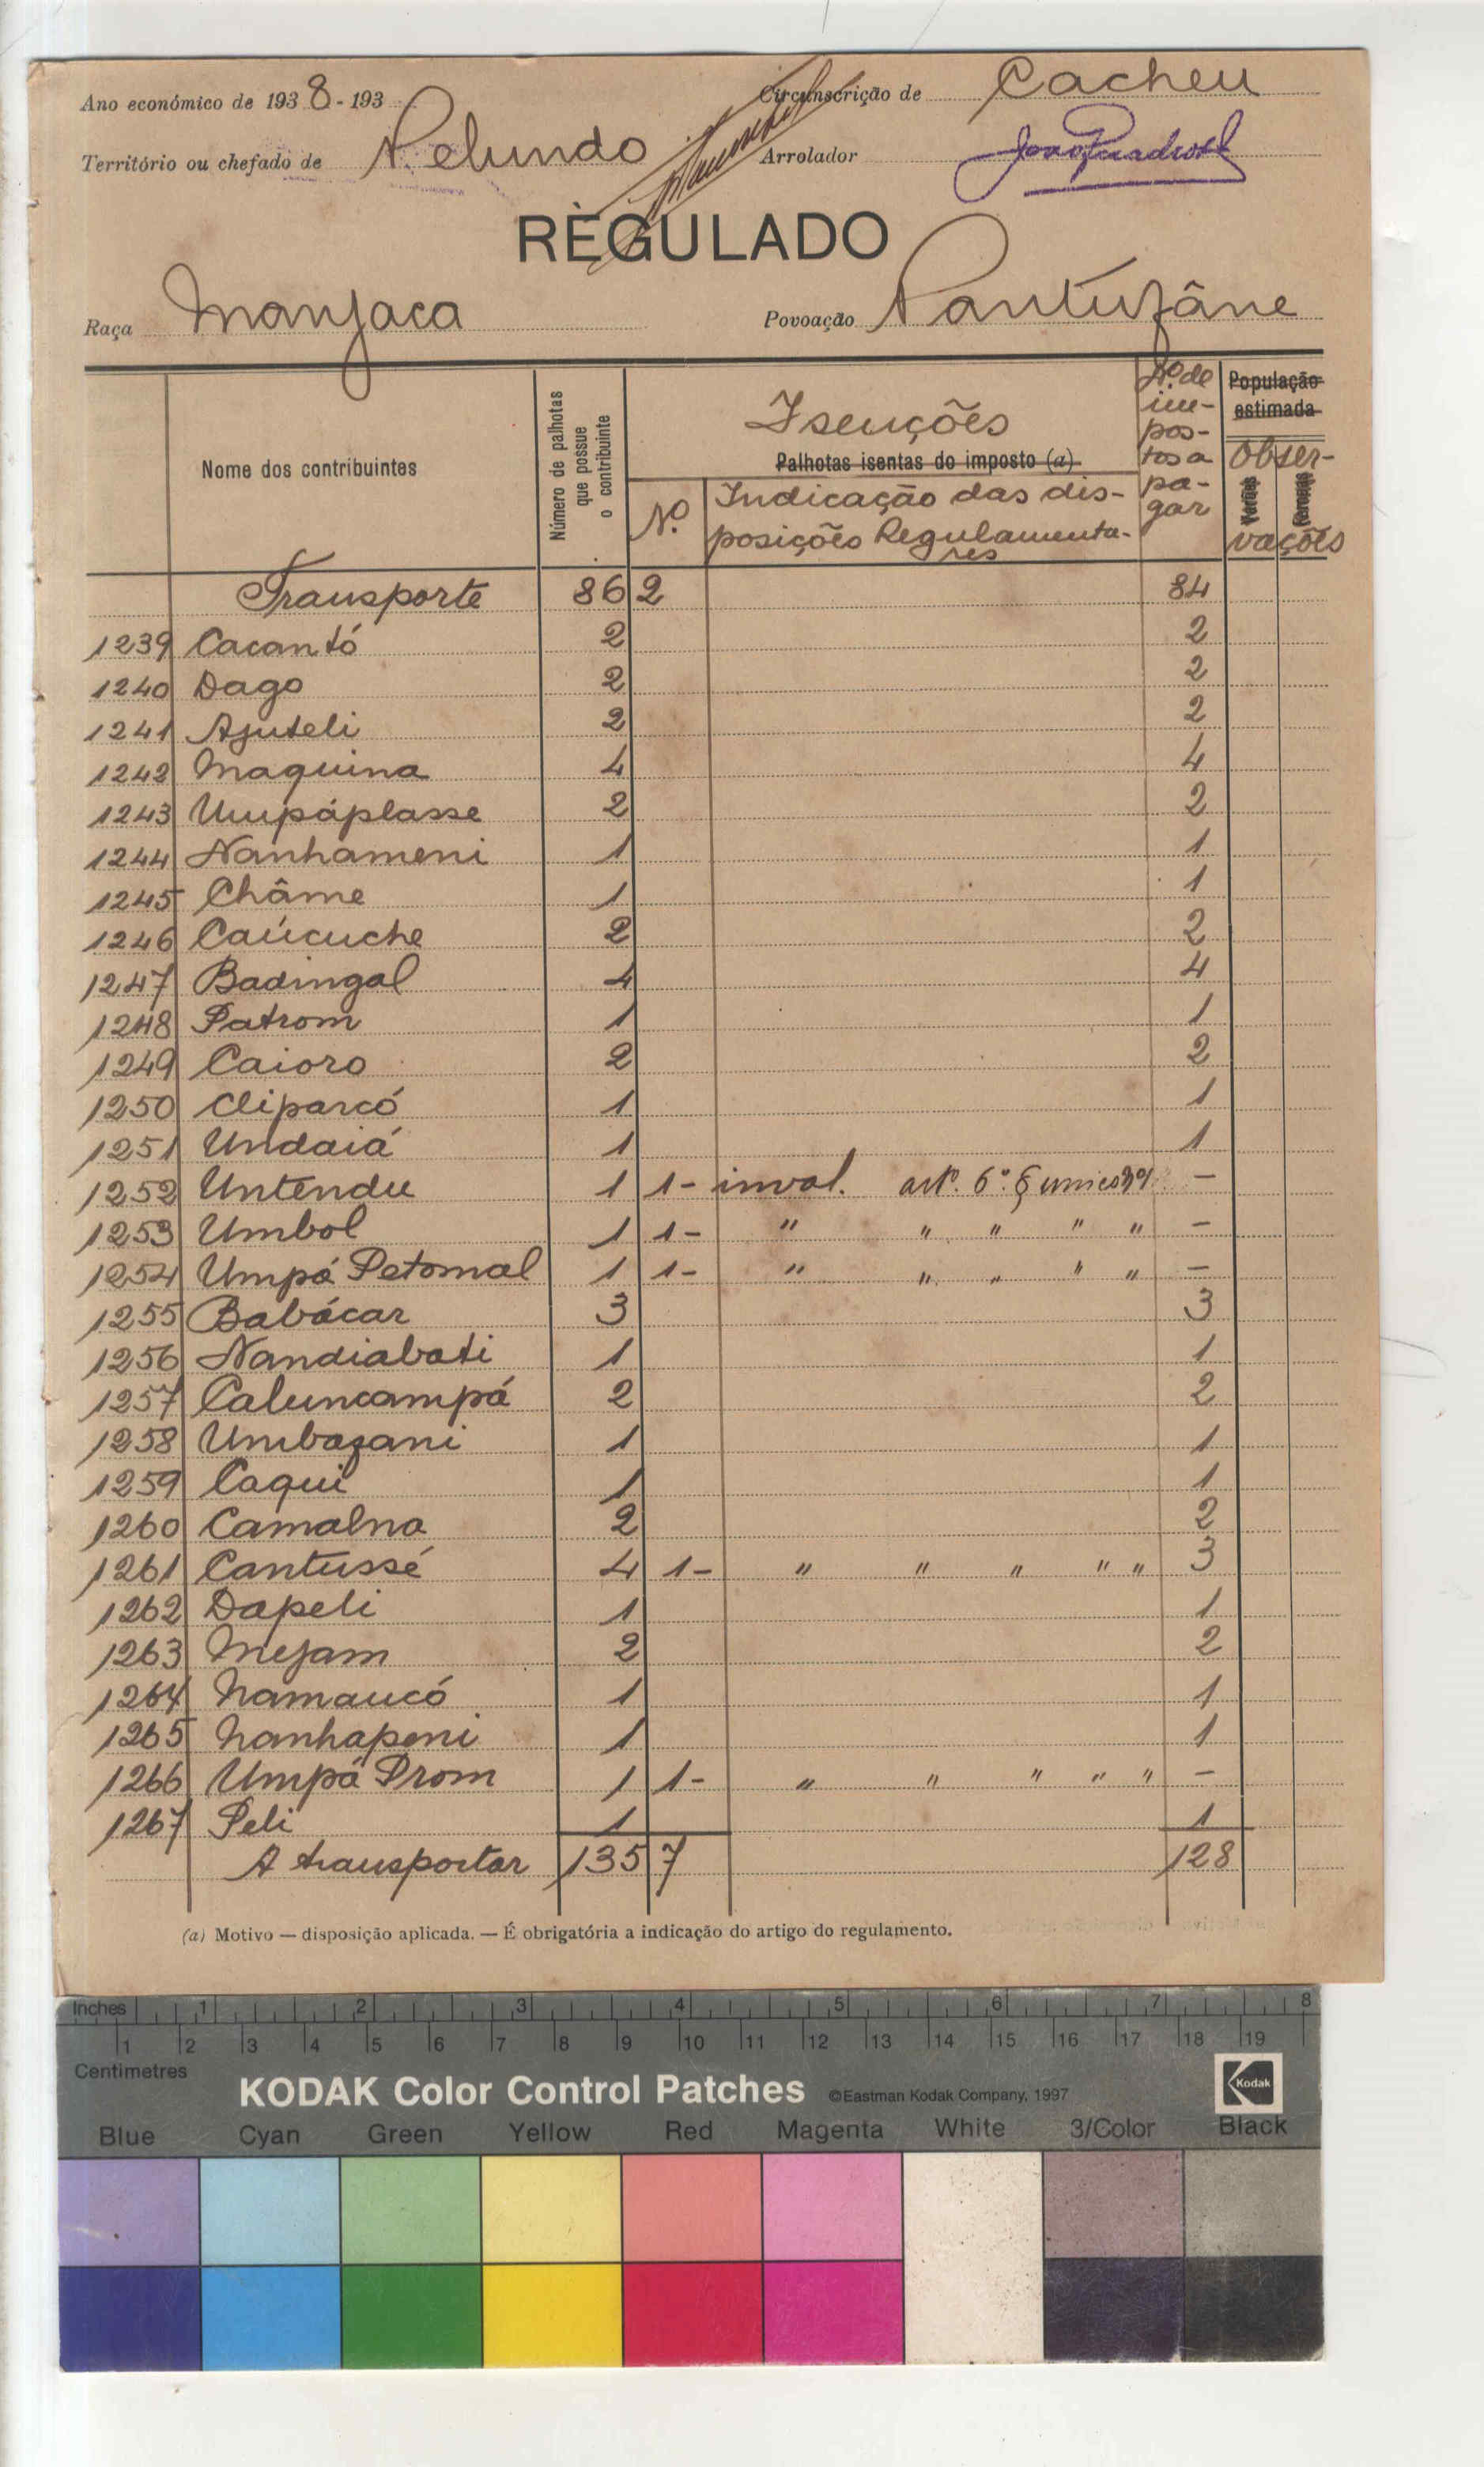 Ano económico de 1938-193
Circunscrição de Cacheu
Território ou chefado de Pelundo
Arrolador
RÈGULADO
Raça Manjaca
Povoação Pantufâne
Nome dos contribuintes
Número de palhotas que possue o contribuinte
Isenções
Palhotas isentas do imposto (a)
Nº
Indicação das disposições Regulamentares
Nº de impostos a pagar
População estimada
Observações
Varões
Femeas
Transporte 86 2 84
1239 Cacantó 2 2
1240 Dago 2 2
1241 Ajuteli 2 2
1242 Maquina 4 4
1243 Umpáplasse 2 2
1244 Nanhameni 1 1
1245 Châme 1 1
1246 Caúcuche 2 2
1247 Badingal 4 4
1248 Patrom 1 1
1249 Caioro 2 2
1250 Cliparcó 1 1
1251 Undaiá 1 1
1252 Untendu 1 1- inval. artº. 6º. § unico -
1253 Umbol 1 1- " " " " " -
1254 Umpá Petomal 1 1- " " " " " -
1255 Babácar 3 3
1256 Nandiabati 1 1
1257 Caluncampá 2 2
1258 Umbazani 1 1
1259 Caqui 1 1
1260 Camalna 2 2
1261 Cantussé 4 1- " " " " " 3
1262 Dapeli 1 1
1263 Mejam 2 2
1264 Namaucó 1 1
1265 Nanhapeni 1 1
1266 Umpá Prom 1 1- " " " " " -
1267 Peli 1 1
A transportar 135 7 128
(a) Motivo — disposição aplicada. — É obrigatória a indicação do artigo do regulamento.
Inches 1 2 3 4 5 6 7 8
1 2 3 4 5 6 7 8 9 10 11 12 13 14 15 16 17 18 19
Centimetres
KODAK Color Control Patches ©Eastman Kodak Company, 1997 Kodak
Blue Cyan Green Yellow Red Magenta White 3/Color Black